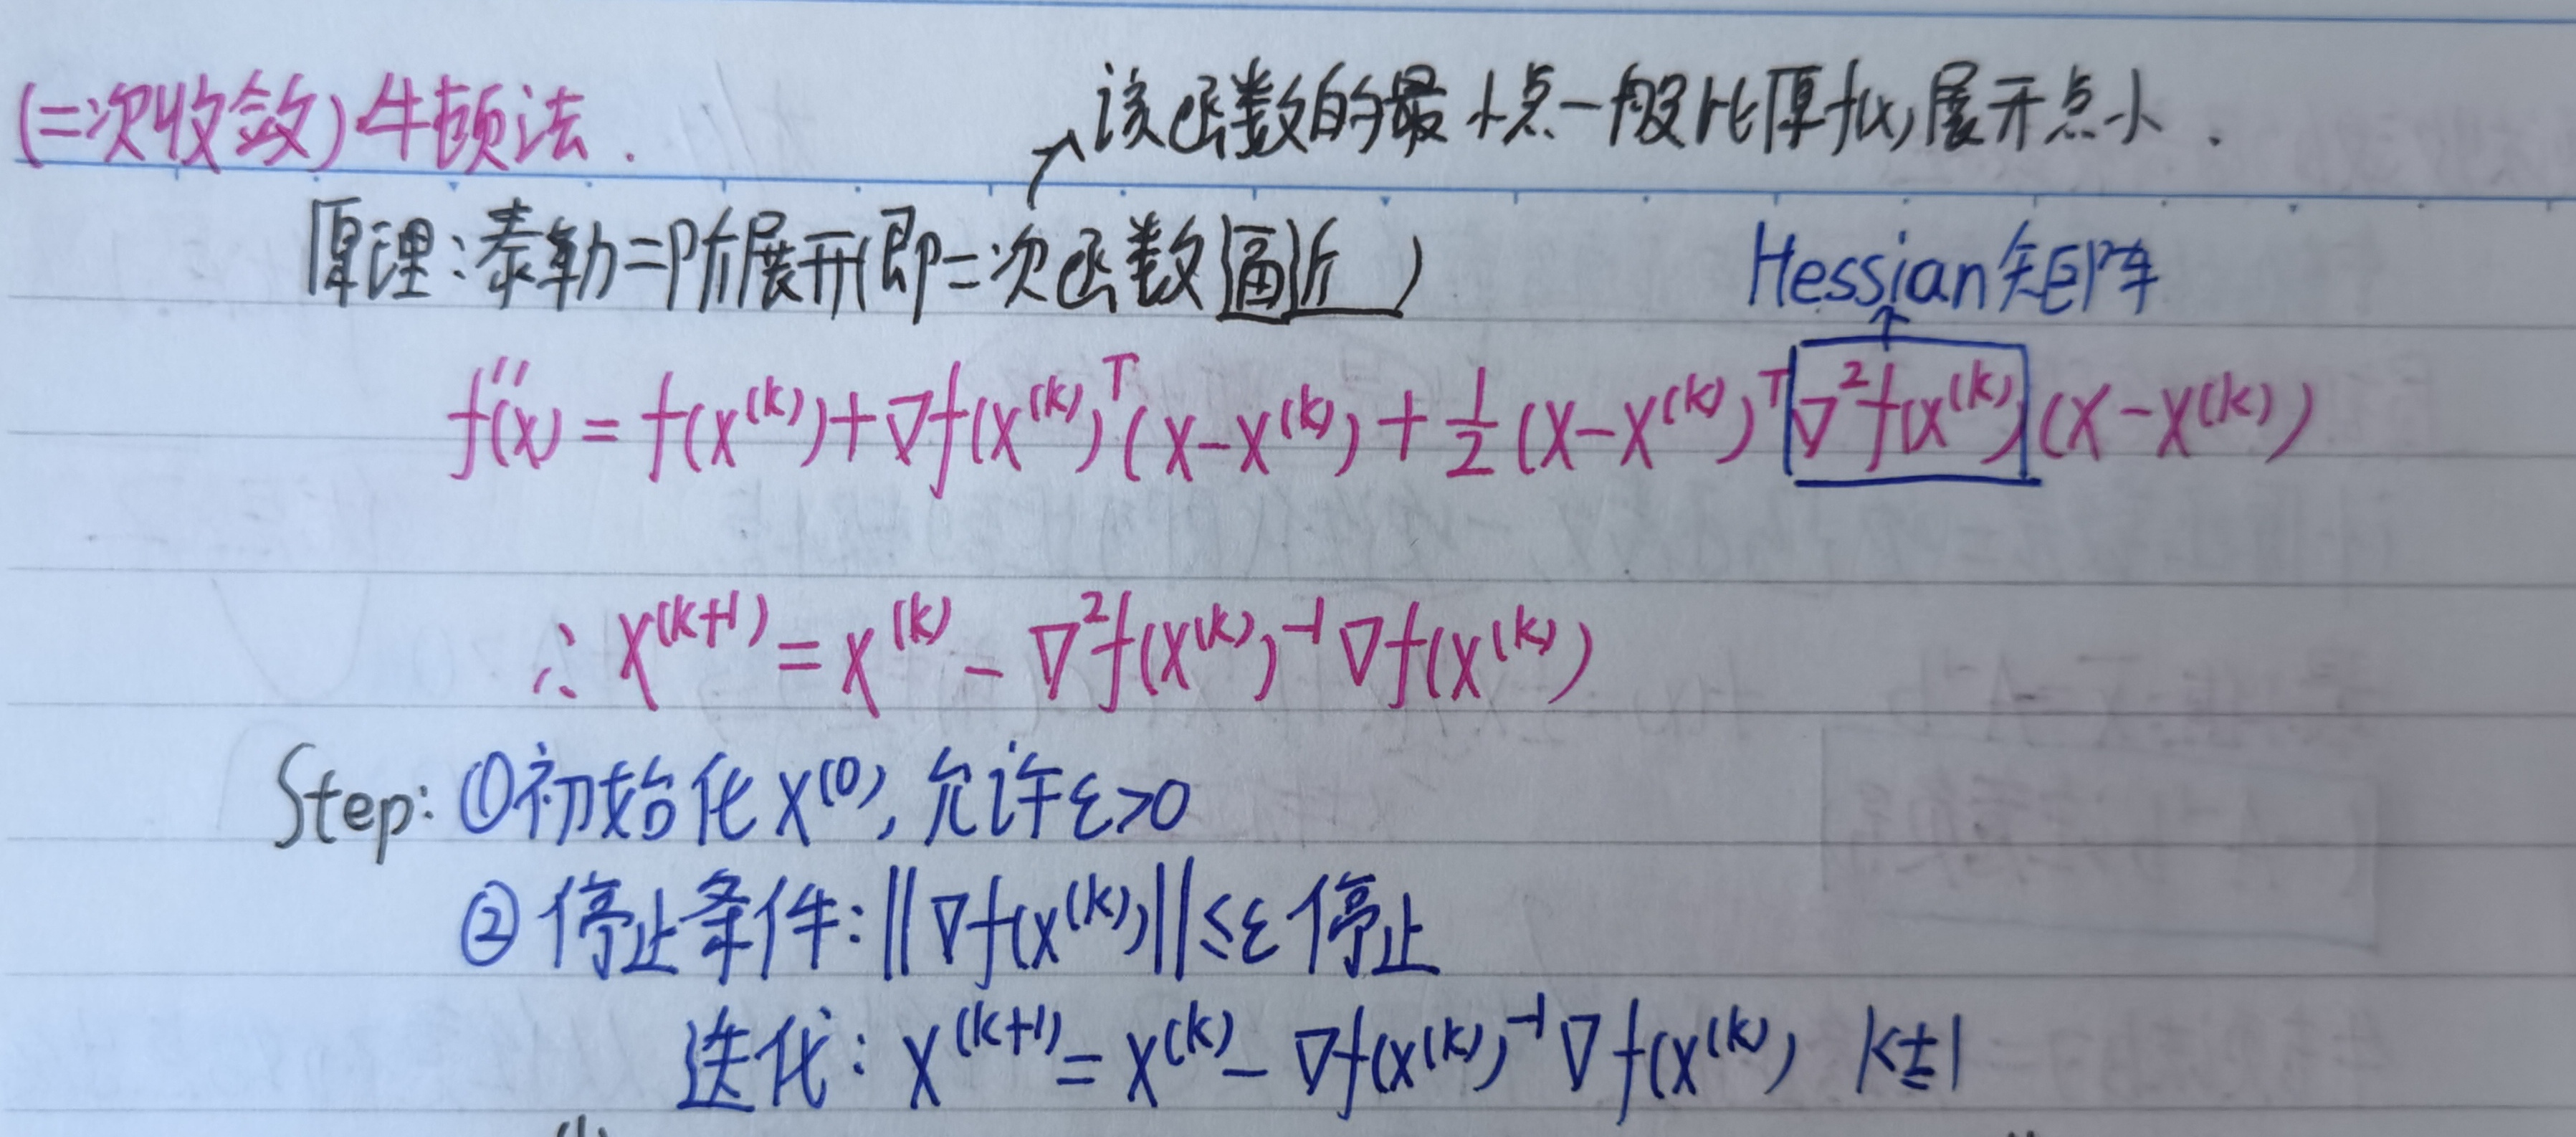 (二次收敛)牛顿法.
该函数的最小点一般比原f(x)展开点小.
原理:泰勒二阶展开(即二次函数逼近)
Hessian矩阵
f''(x) = f(x^(k)) + ∇f(x^(k))^T (x-x^(k)) + 1/2 (x-x^(k))^T ∇²f(x^(k)) (x-x^(k))
∴ x^(k+1) = x^(k) - ∇²f(x^(k))^-1 ∇f(x^(k))
Step: ①初始化x^(0), 允许ε>0
②停止条件: ‖∇f(x^(k))‖≤ε 停止
迭化: x^(k+1) = x^(k) - ∇f(x^(k))^-1 ∇f(x^(k)) k±1